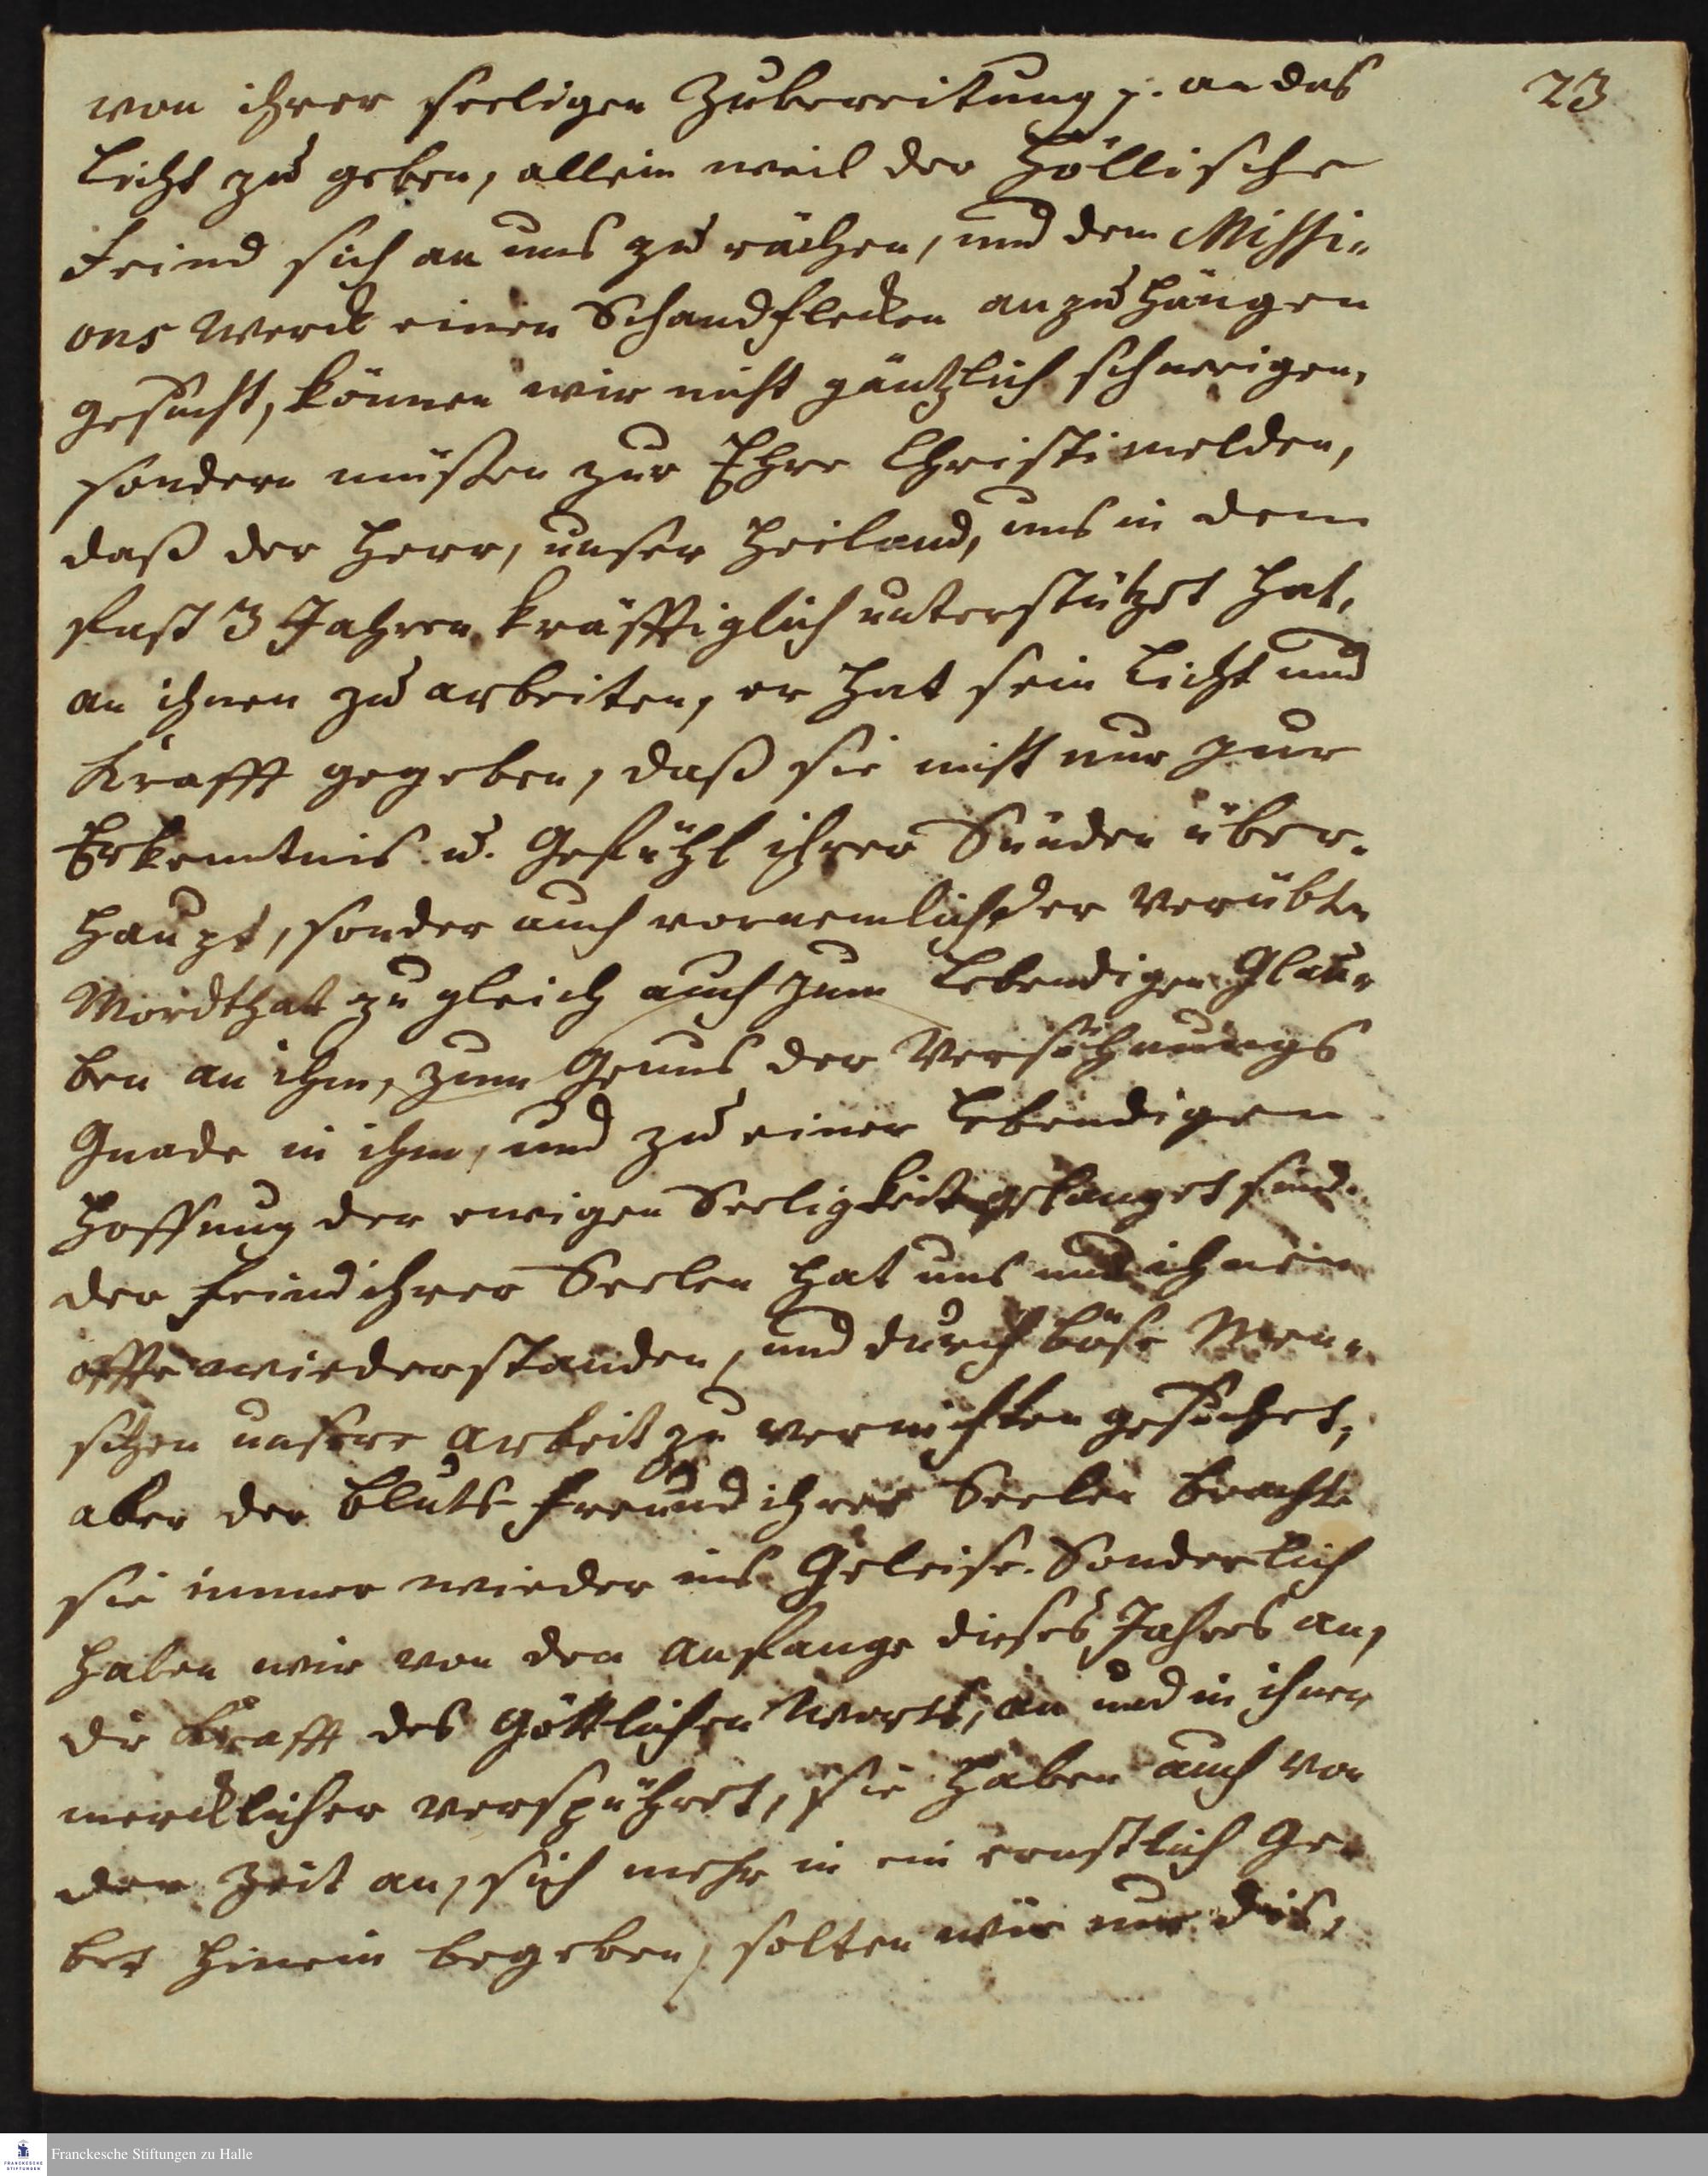 23
von ihrer seeligen Zubereitung p. an das
Licht zu geben, allein weil der Höllische
Feind sich an uns zu rächen, und dem Missi-
ons Werck einen Schandflecken anzuhängen
gesucht, können wir nicht gäntzlich schweigen,
sondern müßen zur Ehre Christi melden,
daß der Herr, unser Heiland, uns in dem
fast 3 Jahren kräfftiglich unterstützet hat,
an ihnen zu arbeiten, er hat sein Licht und
Krafft gegeben, daß sie nicht nur zur
Erkenntnis u. Gefühl ihrer Sünden über-
haupt, sonder auch vornemlich der verübten
Mordthat zu gleich auch zum Lebendigen Glau-
ben an ihm, zum Genus der Versöhnungs
Gnade in ihm, und zu einer Lebendigen
Hoffnung der ewigen Seeligkeit gelanget sind.
der Feind ihrer Seelen hat uns und ihnen
offte wiederstanden, und durch böse Men-
schen unsere Arbeit zu vernichten gesuchet,
aber der Bluts-Freund ihrer Seelen brachte
sie immer wieder ins Geleise. Sonderlich
haben wir von dem Anfange dieses Jahres an,
die Krafft des Göttlichen Worts, an und in ihnen
mercklicher verspühret, sie haben auch von
der Zeit an, sich mehr in ein ernstlich Ge-
bet hinein begeben, solten wir nur dis,
Franckesche Stiftungen zu Halle
FRANCKESCHE
STIFTUNGEN